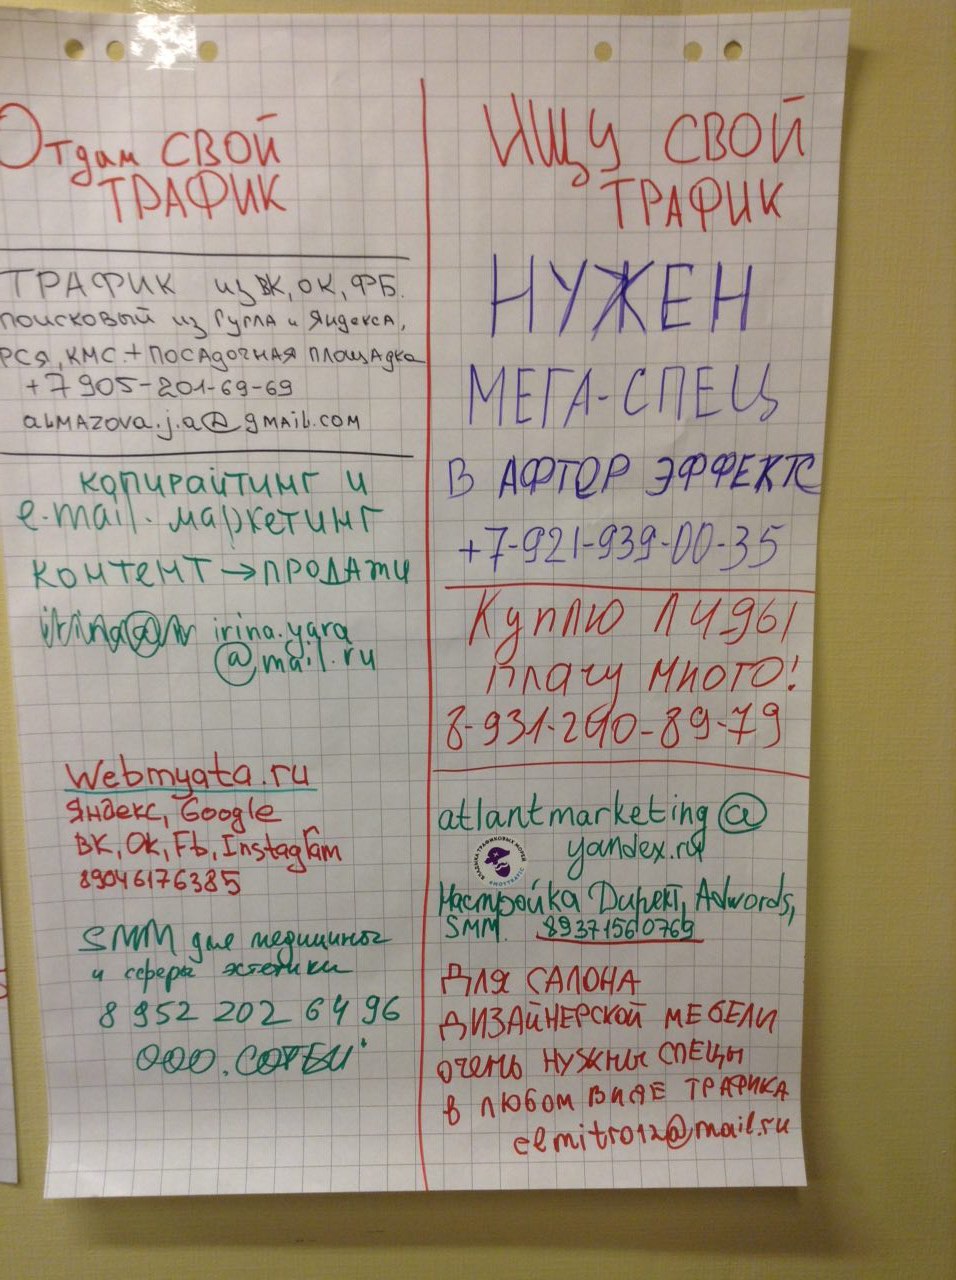 Отдам СВОЙ
ТРАФИК
ТРАФИК из ВК, ОК, ФБ.
поисковый из Гугла и Яндекса,
РСЯ, КМС + ПОСАДОЧНАЯ ПЛОЩАДКА
+7 905-201-69-69
almazova.j.a@gmail.com
копирайтинг и
e-mail-маркетинг
контент → продажи
irina.yara
@mail.ru
Webmyata.ru
Яндекс, Google
ВК, OK, Fb, Instagram
89046176385
SMM для медицины
и сферы эстетики
8 952 202 64 96
ООО.
ИЩУ СВОЙ
ТРАФИК
НУЖЕН
МЕГА-СПЕЦ
В АФТОР ЭФФЕКТС
+7-921-939-00-35
Куплю
плачу много!
8-931-290-89-79
atlantmarketing@
yandex.ru
Настройка Директ, Adwords,
SMM. 89371560769
ДЛЯ САЛОНА
ДИЗАЙНЕРСКОЙ МЕБЕЛИ
очень нужны СПЕЦЫ
в любом виде ТРАФИКА
elmitro12@mail.ru